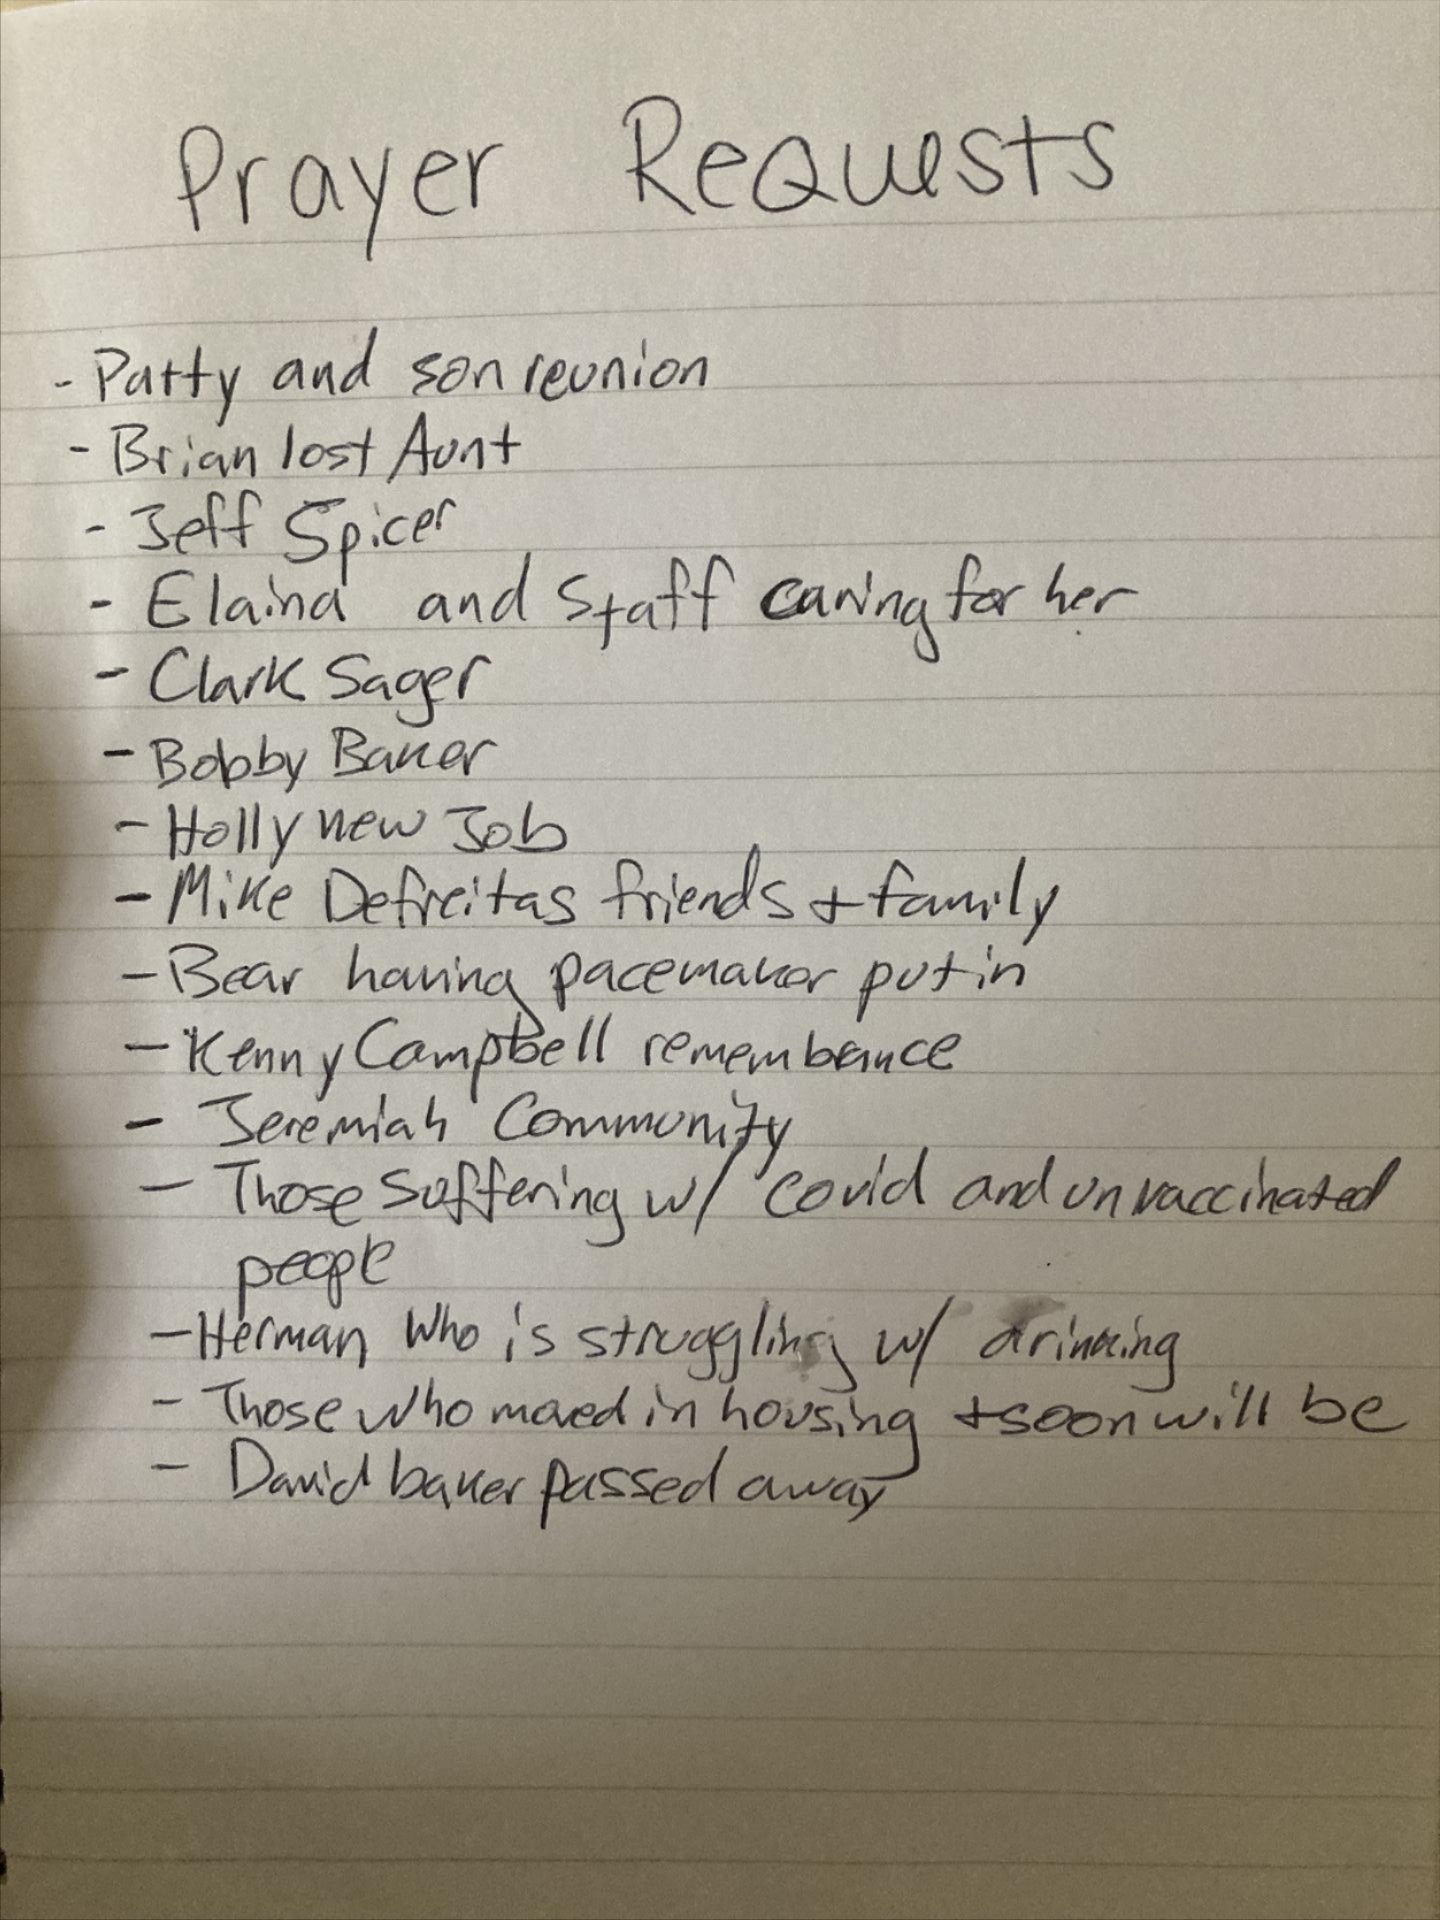 Prayer Requests
- Patty and son reunion
- Brian lost Aunt
- Jeff Spicer
- Elaina and Staff caring for her
- Clark Sager
- Bobby Baker
- Holly new Job
- Mike Defreitas friends + family
- Bear having pacemaker put in
- Kenny Campbell remembrance
- Jeremiah Community
- Those suffering w/ covid and unvaccinated
people
- Herman who is struggling w/ drinking
- Those who moved in housing + soon will be
- David baker passed away